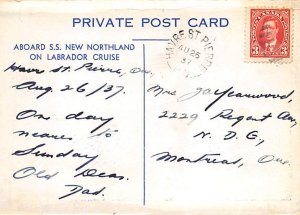 PRIVATE POST CARD
ABOARD S.S. NEW NORTHLAND
ON LABRADOR CRUISE
HAVRE ST PIERRE
AU 26
37
CANADA
3 3
Havre St. Pierre, Que.
Aug. 26/37.
On day
nearer to
Sunday
Old Dear.
Dad.
Mrs Yearwood,
2229 Regent Av,
N. D. G.,
Montreal, Que.